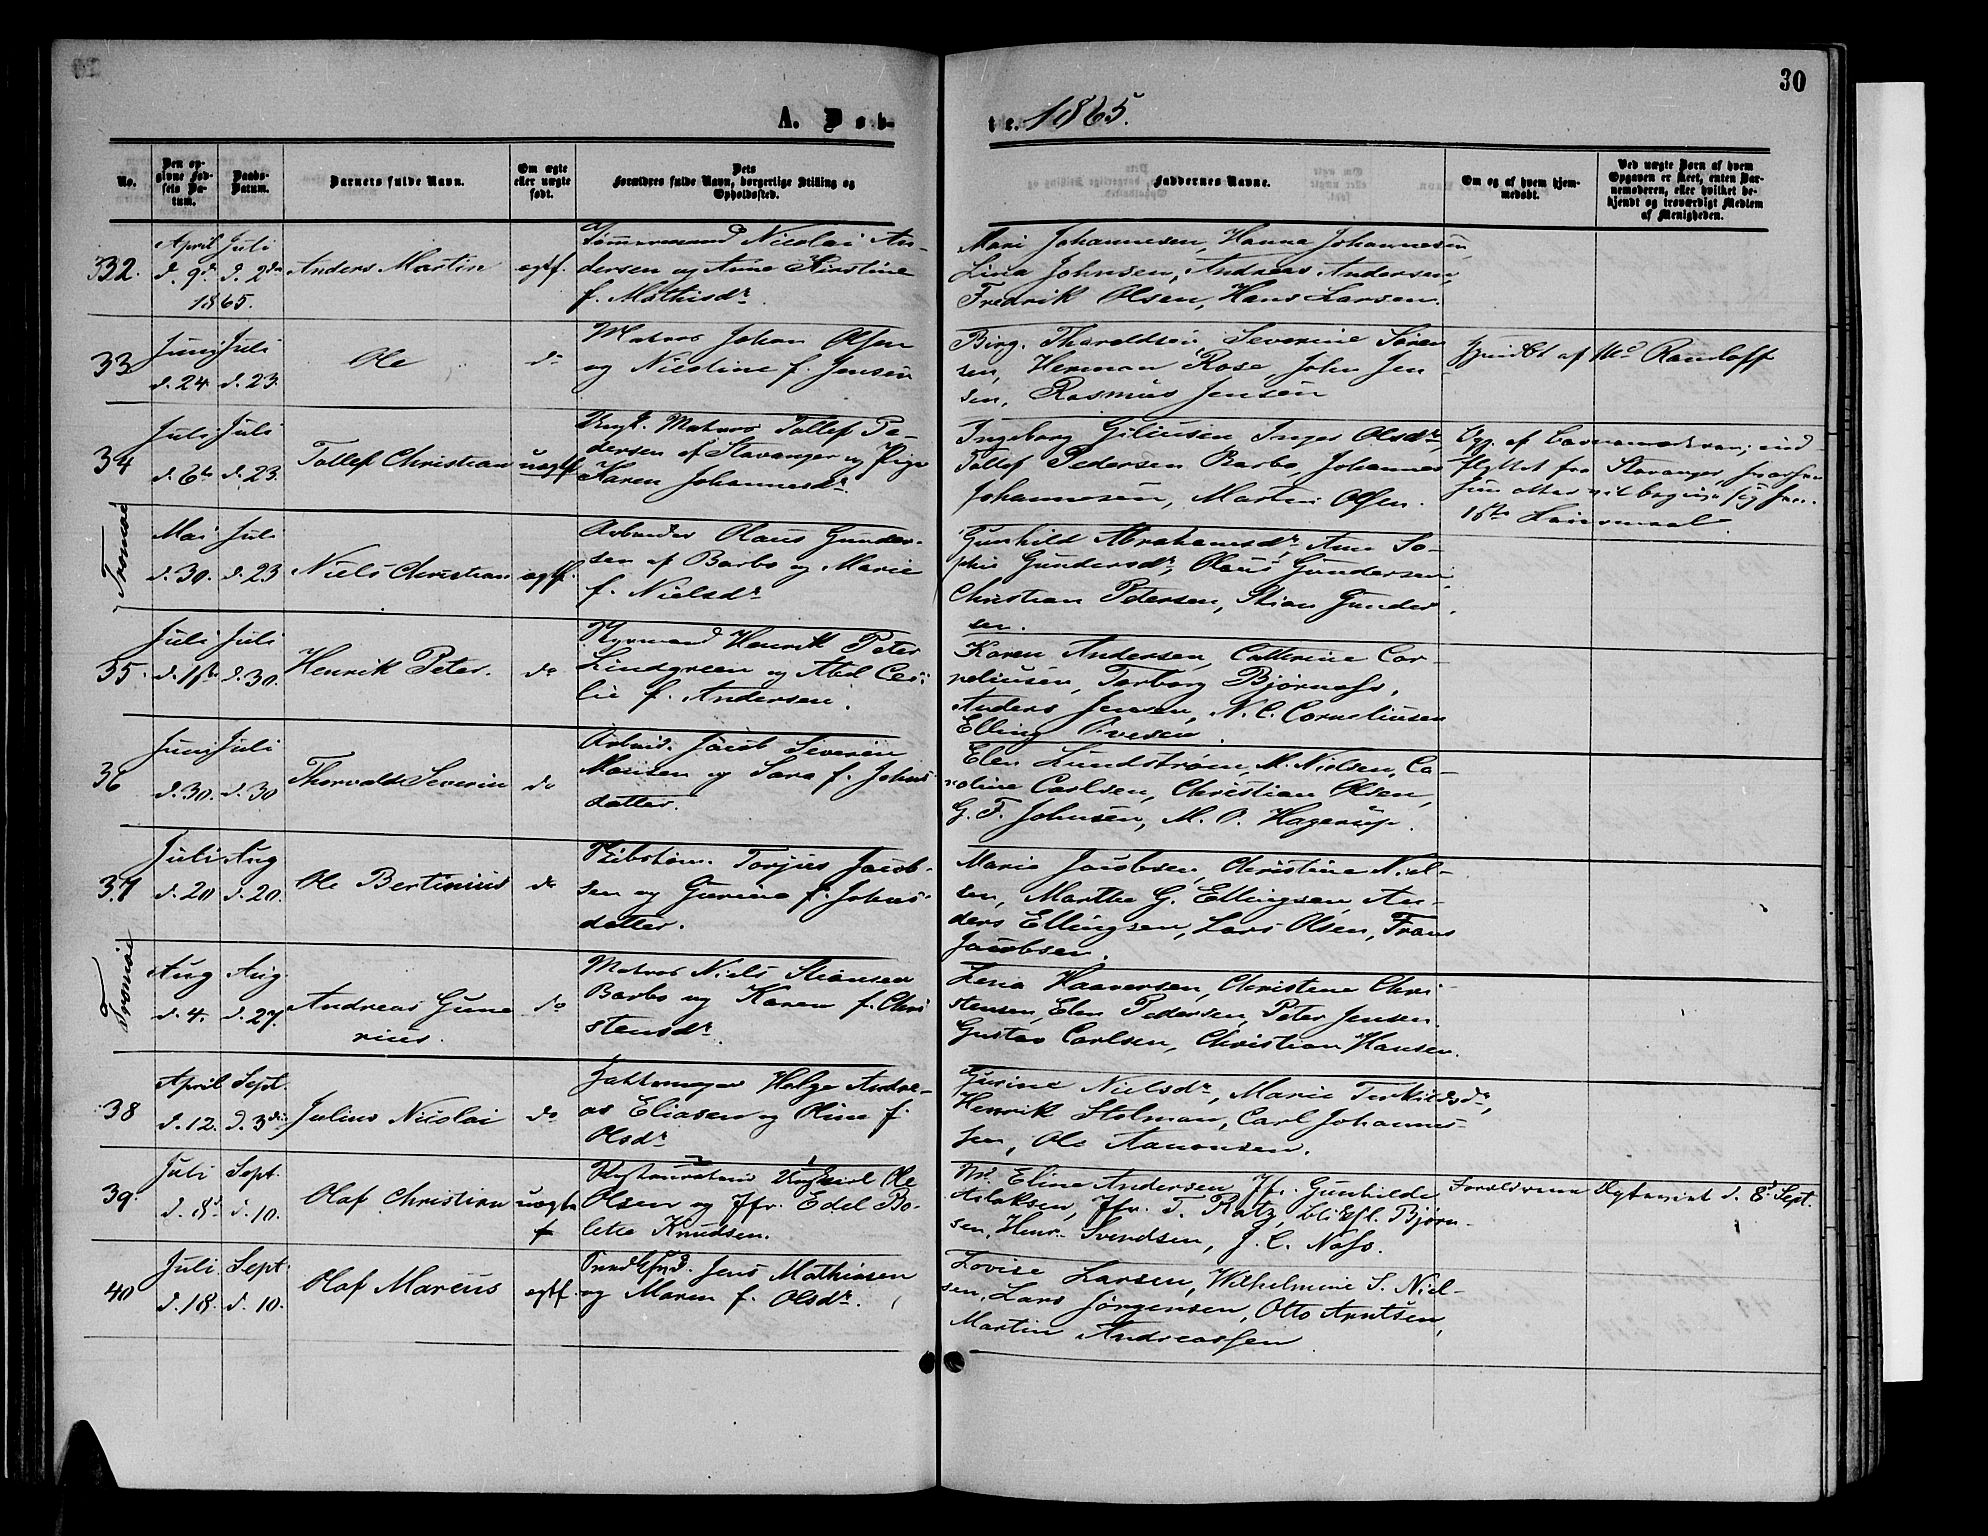 30
A. Døb-
te. 1865.
No.
Den opgivne Fødsels Datum.
Daabs-Datum.
Barnets fulde Navn.
Om ægte eller uægte født.
Dets Forældres fulde Navn, borgerlige Stilling og Opholdssted.
Faddernes Navne.
Om og af hvem hjemmedøbt.
Ved uægte Barn af hvem Opgaven er skeet, enten Barnemoderen, eller hvilket bekjendt og troværdigt Medlem af Menigheden.
332.
April d. 9d
1865.
Juli d. 2den
Anders Martin
egtf.
Tømmermand Nicolai An-
dersen og Anne Kirstine
f. Mathisdr.
Mari Johannesen, Hanna Johannesen,
Lina Johnsen, Andreas Andersen,
Fredrik Olsen, Hans Larsen.
33
Junj d. 24.
Juli d. 23.
Ole
do
Matros Johan Olsen
og Nicoline f. Jensen
Birg. Tharaldsen, Severine Søren
sen, Herman Rose, John Jen-
sen, Rasmus Jensen
af Md Ramloff
34
Juli d. 6te
Juli d. 23.
Tollef Christian
uægtf
Ungk. Matros Tollef Pe-
dersen af Stavanger og Pige
Karen Johannesdr.
Ingeborg Giliusen, Inger Olsdr,
Tollef Pedersen Barbo, Johannes
Johannesen, Martin Olsen.
Opg. af Barnemoderen; ind-
flyttet fra Stavanger,
Tromøe
Mai d. 30.
Juli d. 23
Niels Christian
egtf.
Arbeider Olaus Gunder-
sen af Barbo og Marie
f. Nielsdr
Gunhild Abrahamsdr, Ane So-
phie Gundersdr, Olaus Gundersen,
Christian Petersen, Stian Gunder
sen.
35.
Juli d. 1ste
Juli d. 30.
Henrik Peter.
do
Styrmand Henrik Peter
Lindgreen og Abel Ceci-
lie f. Andersen.
Karen Andersen, Cathrine Cor-
neliusen, Torborg Bjørnass,
Anders Jensen, N. C. Corneliusen
Elling Ivesen.
36
Junj d. 30.
Juli d. 30
Thorvald Severin
do
Arbeid. Jacob Severin
Monsen og Sara f. Johns-
datter.
Elen Lundstrøm, M. Nielsen, Ca-
roline Carlsen, Christian Olsen,
G. F. Johnsen, M. O. Hagerup.
37
Juli d. 20
Aug d. 20.
Ole Bertinius
do
Skibstøm. Torjus Jacob-
sen og Gurine f. Johns-
datter.
Marie Jacobsen, Christine Niel-
sen, Marthe G. Ellingsen, An-
ders Ellingsen, Lars Olsen, Frans
Jacobsen.
Tromøe
Aug d. 4.
Aug d. 27.
Andreas Gune
rius.
do
Matros Niels Stiansen
Barbo og Karen f. Chri
stensdr.
Lena Haaversen, Christine Chri-
stensen, Elen Pedersen, Peter Jensen
Gustav Carlsen, Christian Hansen.
38
April d. 12.
Sept. d. 3die
Julius Nicolai
do
Helge Andre-
as Eliasen og Oline f.
Olsdr
Gurine Nielsdr, Marie Terkildsdr,
Henrik Stolman, Carl Johannes-
sen, Ole Aanonsen.
39.
Juli d. 8d
Sept. d. 10.
Olaf Christian
uægte
f
Restauratør Ungkarl Ole
Olsen og Jfr. Edel Bo-
lette Knudsen.
Md. Eline Andersen, Jfr. Gunhilde
Aslaksen, Jfr. T. Ratz, Bjørn-
sen, Henr. Svendsen, J. C. Næss.
Forældrene Egteviet d. 8d Sept.
40
Juli d. 18.
Sept. d. 10.
Olaf Marcus
egtf.
Jens Mathiesen
og Maren f. Olsdr.
Lovise Larsen, Wilhelmine S. Niel-
sen, Lars Jørgensen, Otto Arntsen,
Martin Andreassen.